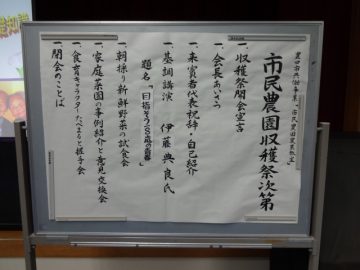 豊田市共働事業「市民農園収穫祭」
市民農園収穫祭次第
一、収穫祭開会宣言
一、会長あいさつ
一、来賓者代表祝辞・自己紹介
一、基調講演 伊藤典良氏
題名「目指そう100歳の青春」
一、朝採り新鮮野菜の試食会
一、家庭菜園の事例紹介と意見交換会
一、食育キャラクターたべまると握手会
一、閉会のことば